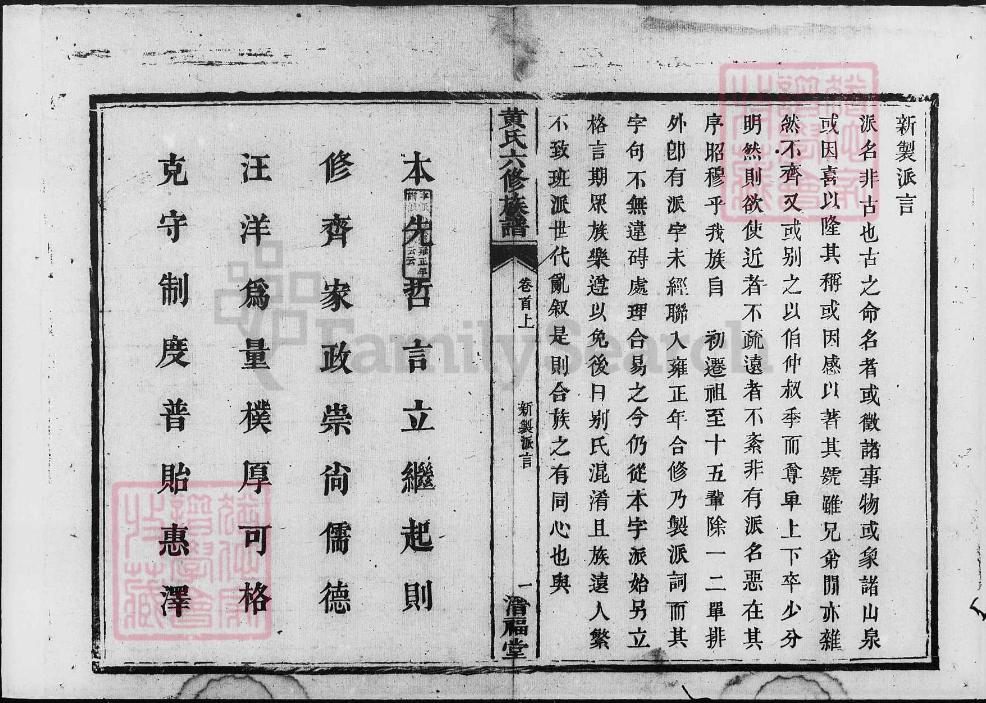 新製派言
派名非古也古之命名者或徵諸事物或象諸山泉
或因喜以隆其稱或因感以著其號雖兄弟閒亦雜
然不齊又或别之以伯仲叔季而尊卑上下卒少分
明然則欲使近者不疏遠者不紊非有派名惡在其
序昭穆乎我族自 初遷祖至十五輩除一二單排
外卽有派字未經聯入雍正年合修乃製派詞而其
字句不無違碍處理合易之今仍從本字派始另立
格言期眾族樂遵以免後日别氏混淆且族遠人繁
不致班派世代亂叙是則合族之有同心也與
黃氏六修族譜
卷首上
新製派言
一
清福堂
本先哲言立繼起則
修齊家政崇尙儒德
汪洋爲量樸厚可格
克守制度普貽惠澤
FamilySearch